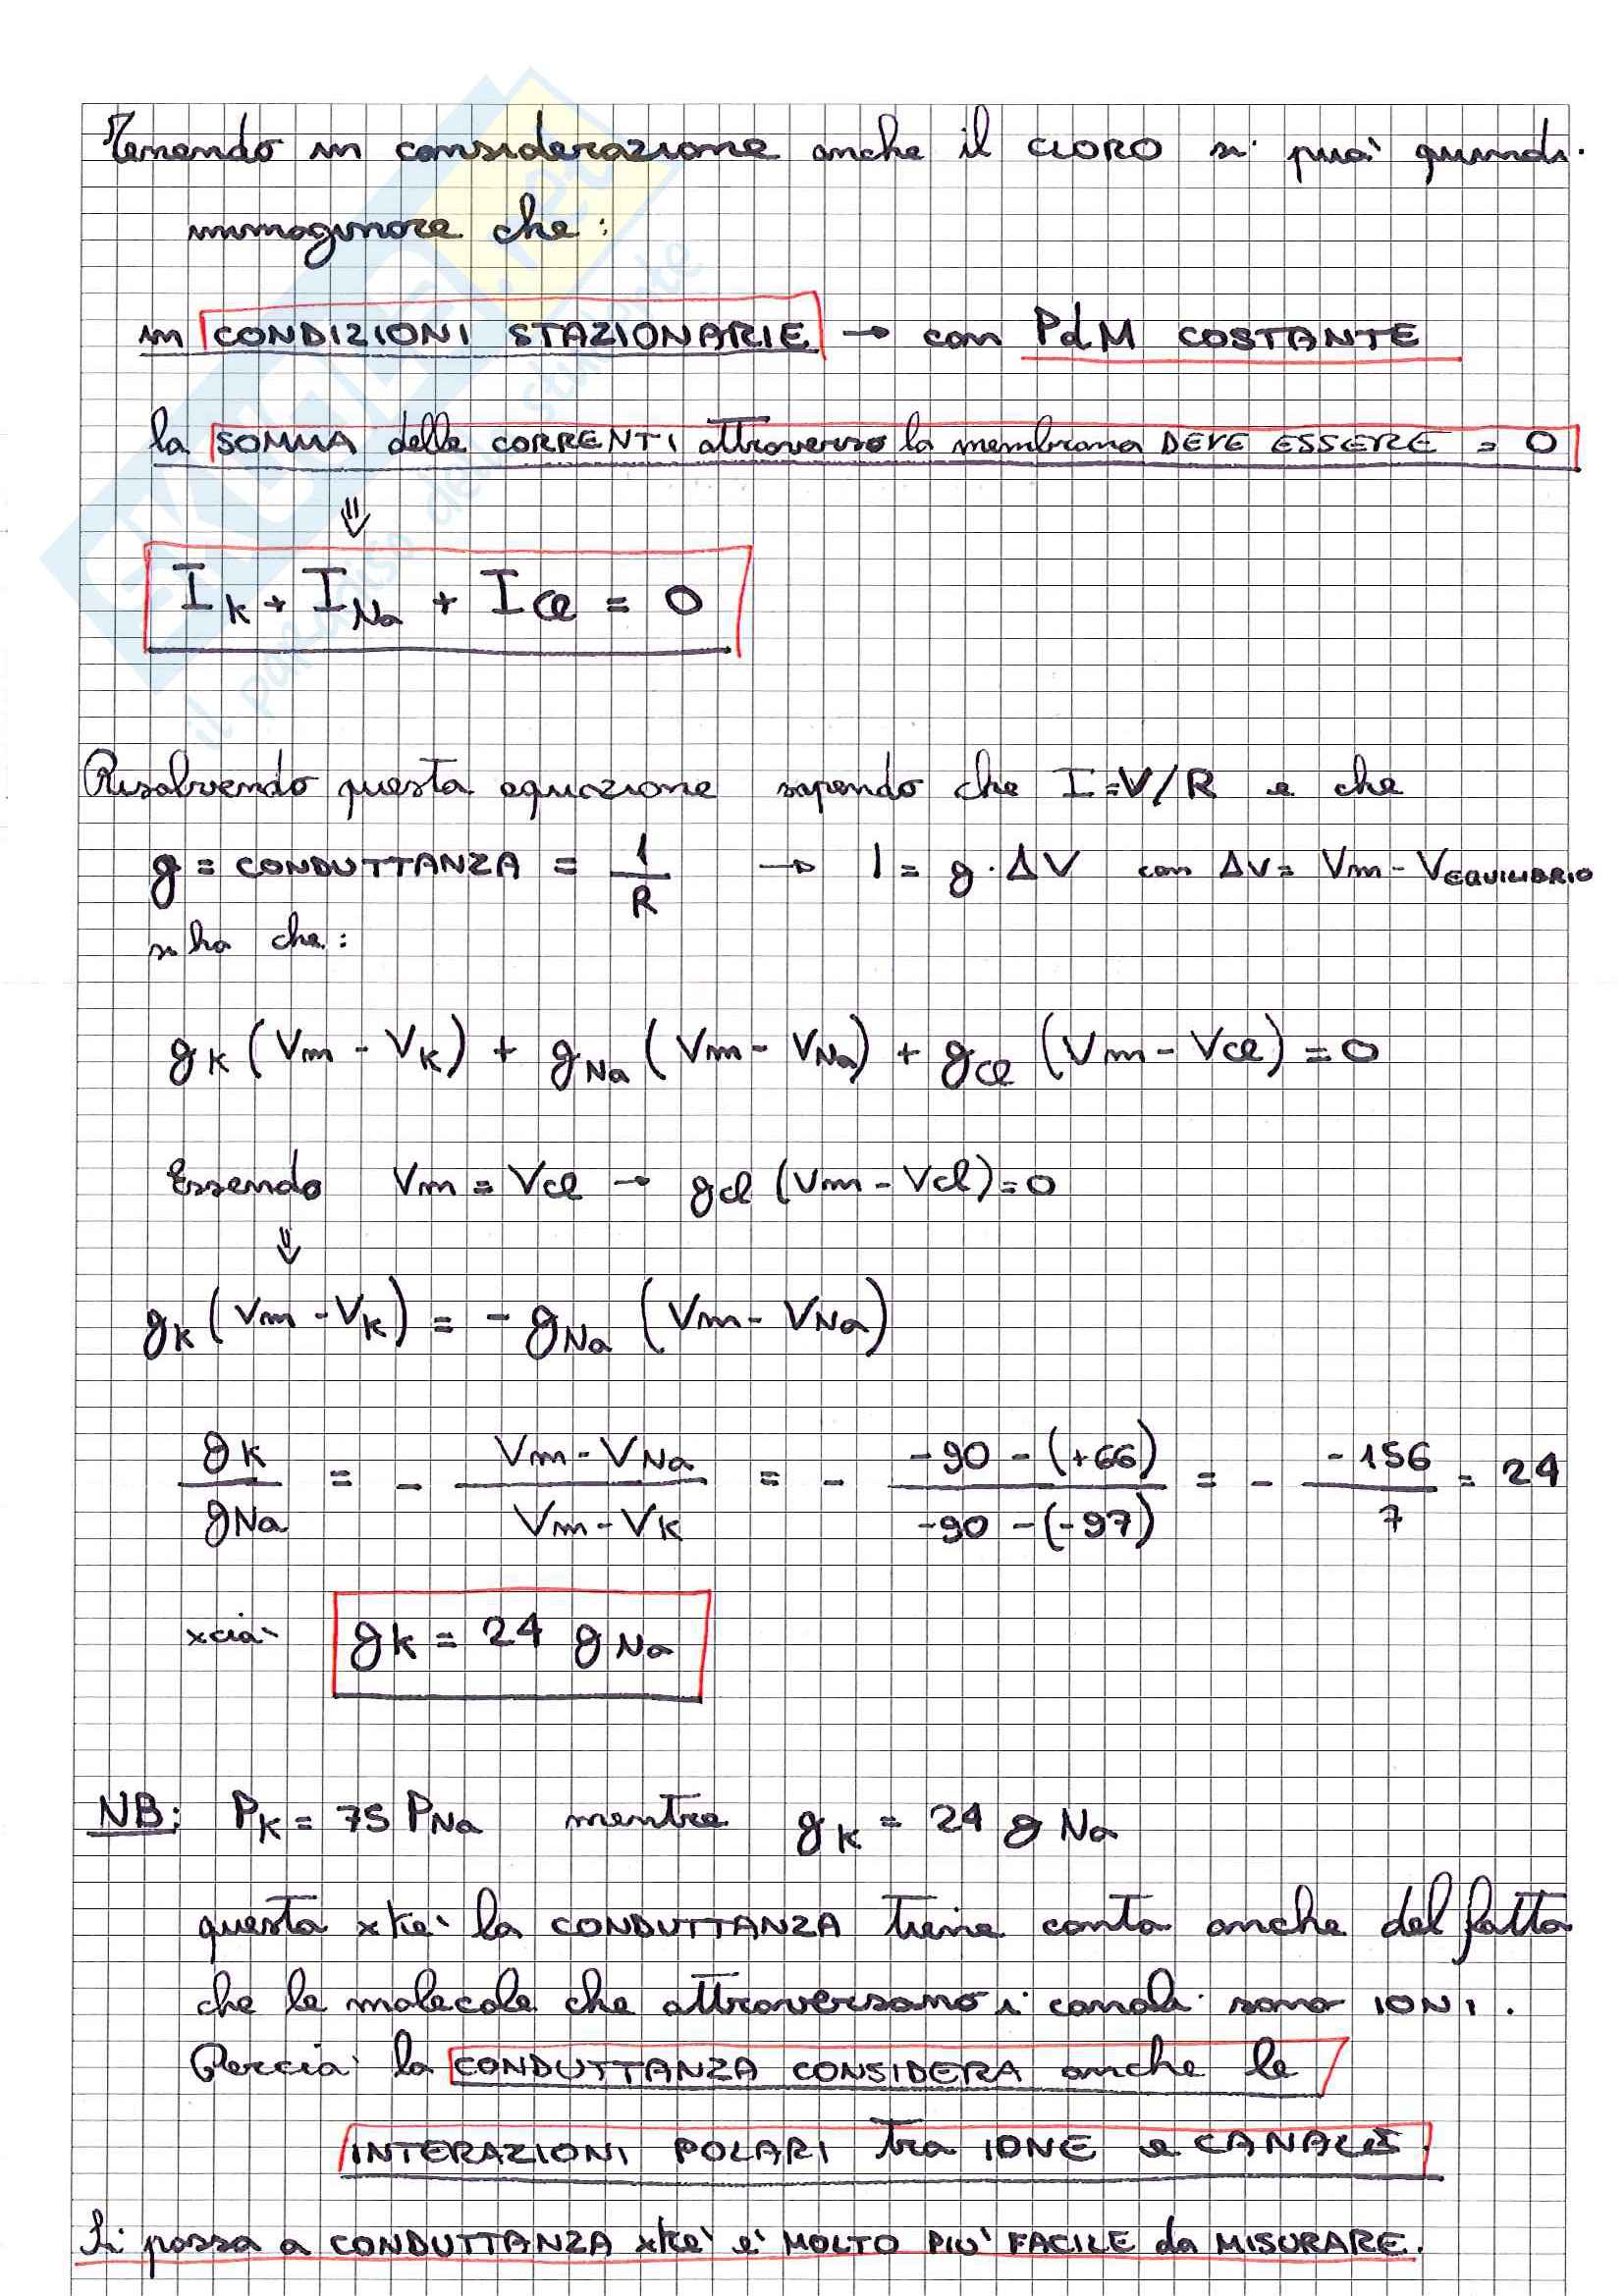 Tenendo in considerazione anche il CLORO si può quindi
immaginare che:
in CONDIZIONI STAZIONARIE → con PdM COSTANTE
la SOMMA delle CORRENTI attraverso la membrana DEVE ESSERE = 0
⇓
I_K + I_Na + I_Cl = 0
Risolvendo questa equazione sapendo che I=V/R e che
g = CONDUTTANZA = 1/R → I = g · ΔV con ΔV = Vm - V_EQUILIBRIO
si ha che:
g_K (Vm - V_K) + g_Na (Vm - V_Na) + g_Cl (Vm - V_Cl) = 0
Essendo Vm = V_Cl → g_Cl (Vm - V_Cl) = 0
⇓
g_K (Vm - V_K) = - g_Na (Vm - V_Na)
g_K / g_Na = - (Vm - V_Na) / (Vm - V_K) = - (-90 - (+66)) / (-90 - (-97)) = - (-156) / 7 = 24
xciò g_K = 24 g_Na
NB: P_K = 75 P_Na mentre g_K = 24 g_Na
questo xkè la CONDUTTANZA tiene conto anche del fatto
che le molecole che attraversano i canali sono IONI.
Perciò la CONDUTTANZA CONSIDERA anche le
INTERAZIONI POLARI tra IONE e CANALE.
Si passa a CONDUTTANZA xkè è MOLTO PIÙ FACILE da MISURARE.
SKUOLA.net
il paradiso dello studente